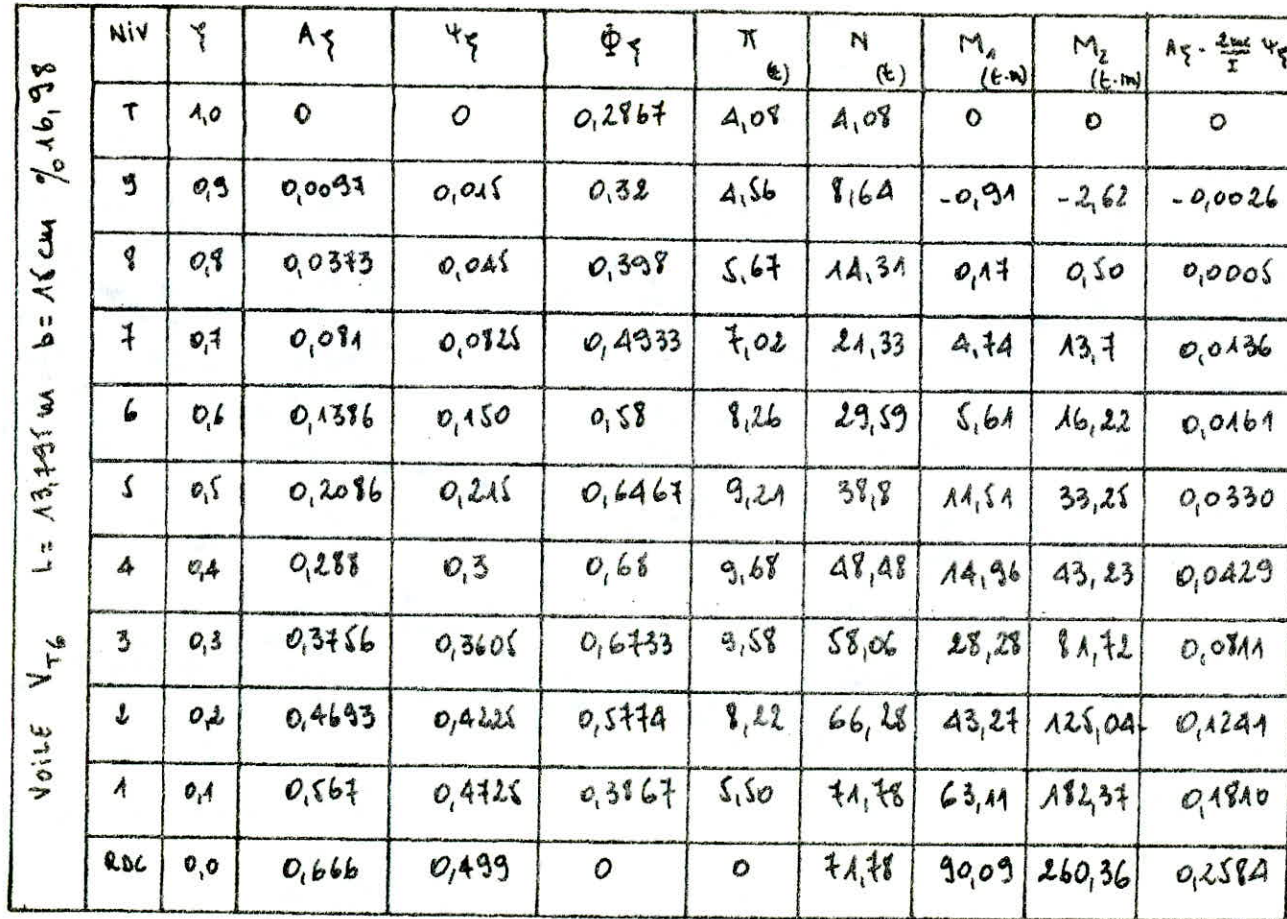 VOILE V_T6 L= 13,795 m b= 15 cm % 16,98
Niv ξ Aξ Ψξ Φξ π (t) N (t) M₁ (t.m) M₂ (t.m) Aξ - 2mc/I Ψξ
T 1,0 0 0 0,2867 4,08 4,08 0 0 0
9 0,9 0,0097 0,015 0,32 4,56 8,64 -0,91 -2,62 -0,0026
8 0,8 0,0373 0,045 0,398 5,67 14,31 0,17 0,50 0,0005
7 0,7 0,081 0,0825 0,4933 7,02 21,33 4,74 13,7 0,0136
6 0,6 0,1386 0,150 0,58 8,26 29,59 5,61 16,22 0,0161
5 0,5 0,2086 0,215 0,6467 9,21 38,8 11,51 33,25 0,0330
4 0,4 0,288 0,3 0,68 9,68 48,48 14,96 43,23 0,0429
3 0,3 0,3756 0,3605 0,6733 9,58 58,06 28,28 81,72 0,0811
2 0,2 0,4693 0,4225 0,5774 8,22 66,28 43,27 125,04 0,1241
1 0,1 0,567 0,4725 0,3867 5,50 71,78 63,11 182,37 0,1810
RDC 0,0 0,666 0,499 0 0 71,78 90,09 260,36 0,2584